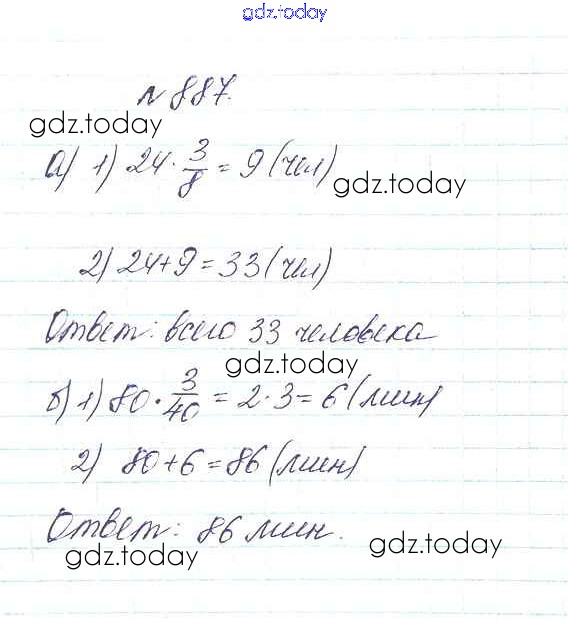 gdz.today
№ 887.
gdz.today
а) 1) 24 · 3/8 = 9 (чел)
gdz.today
2) 24+9 = 33 (чел)
Ответ: всего 33 человека
gdz.today
б) 1) 80 · 3/40 = 2 · 3 = 6 (мин)
2) 80+6 = 86 (мин)
Ответ: 86 мин.
gdz.today
gdz.today